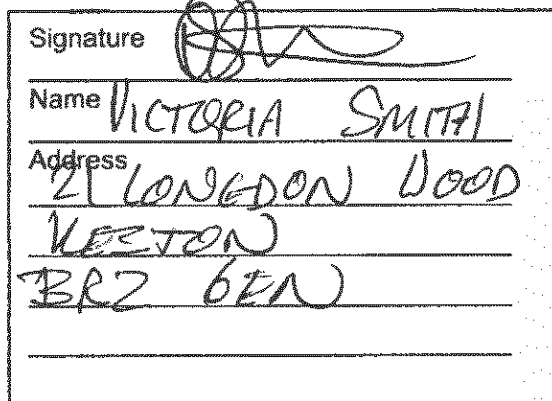 Signature
Name VICTORIA SMITH
Address
21 LONGDON WOOD
KESTON
BR2 6EN